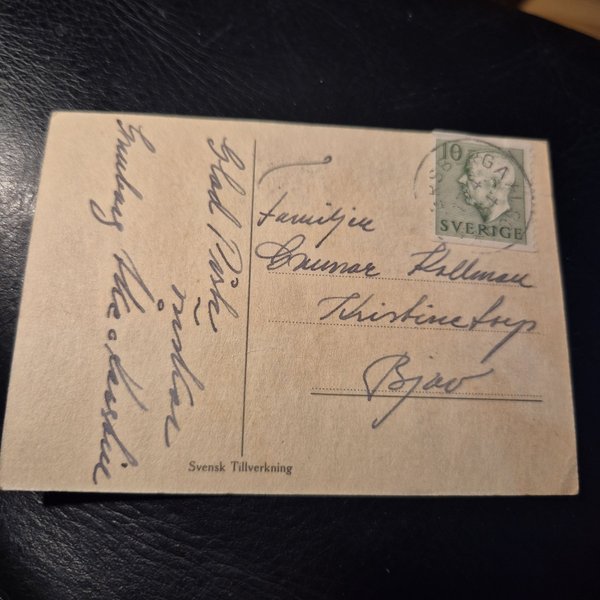 Glad Påsk
önskar
Ida o Kerstin
10
SVERIGE
Familjen
Gunnar Kollman
Kristinetorp
Bjav
Svensk Tillverkning